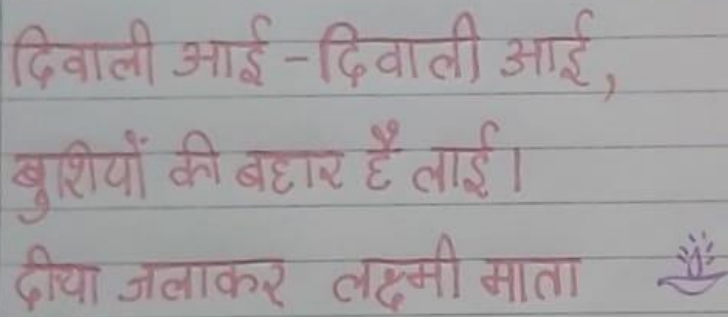 दिवाली आई - दिवाली आई,
खुशियों की बहार है लाई।
दीया जलाकर लक्ष्मी माता